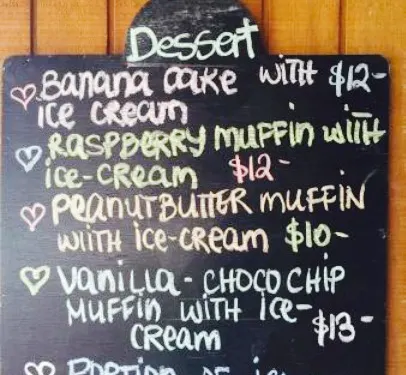 Dessert
Banana cake with $12-
ice cream
Raspberry muffin wiith
ice-cream $12-
Peanutbutter muffin
wiith ice-cream $10-
Vanilla - choco chip
muffin with ice-
cream $13-
Portion of ice